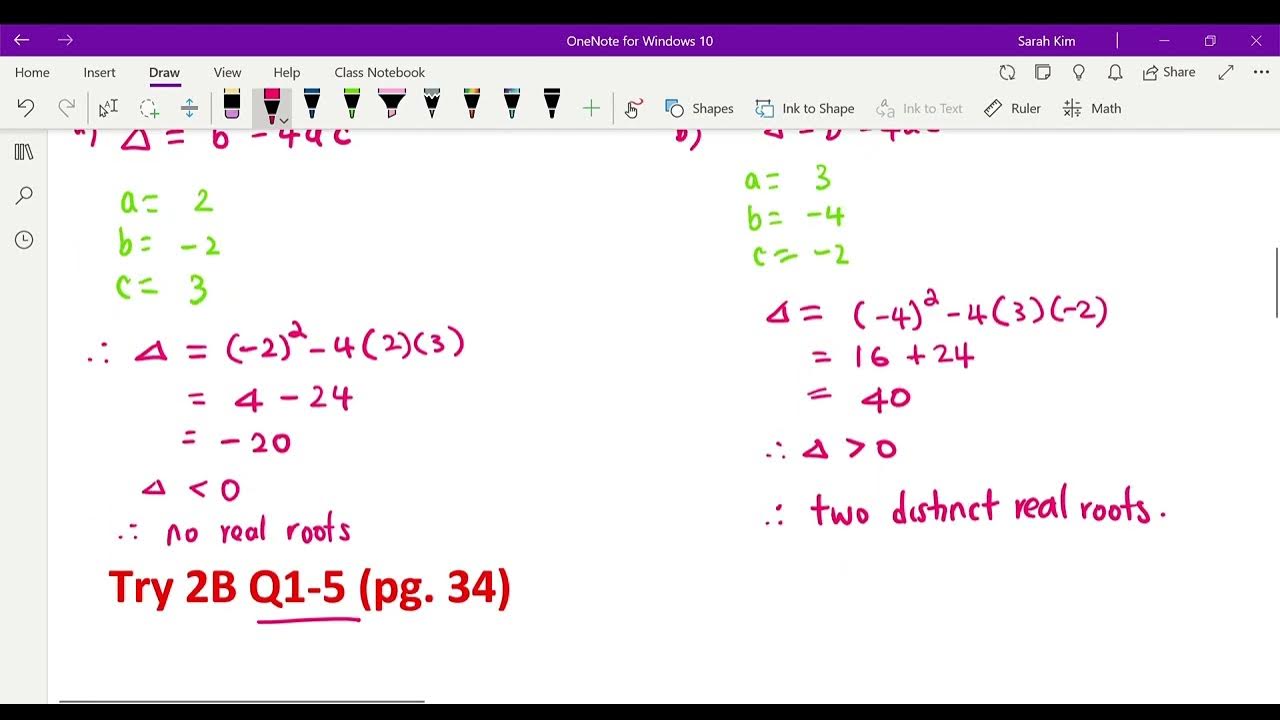 OneNote for Windows 10
Sarah Kim
Home Insert Draw View Help Class Notebook Share
Shapes Ink to Shape Ink to Text Ruler Math
a) Δ = b² - 4ac
a = 2
b = -2
c = 3
∴ Δ = (-2)² - 4(2)(3)
= 4 - 24
= -20
Δ < 0
∴ no real roots
Try 2B Q1-5 (pg. 34)
b) Δ = b² - 4ac
a = 3
b = -4
c = -2
Δ = (-4)² - 4(3)(-2)
= 16 + 24
= 40
∴ Δ > 0
∴ two distinct real roots.